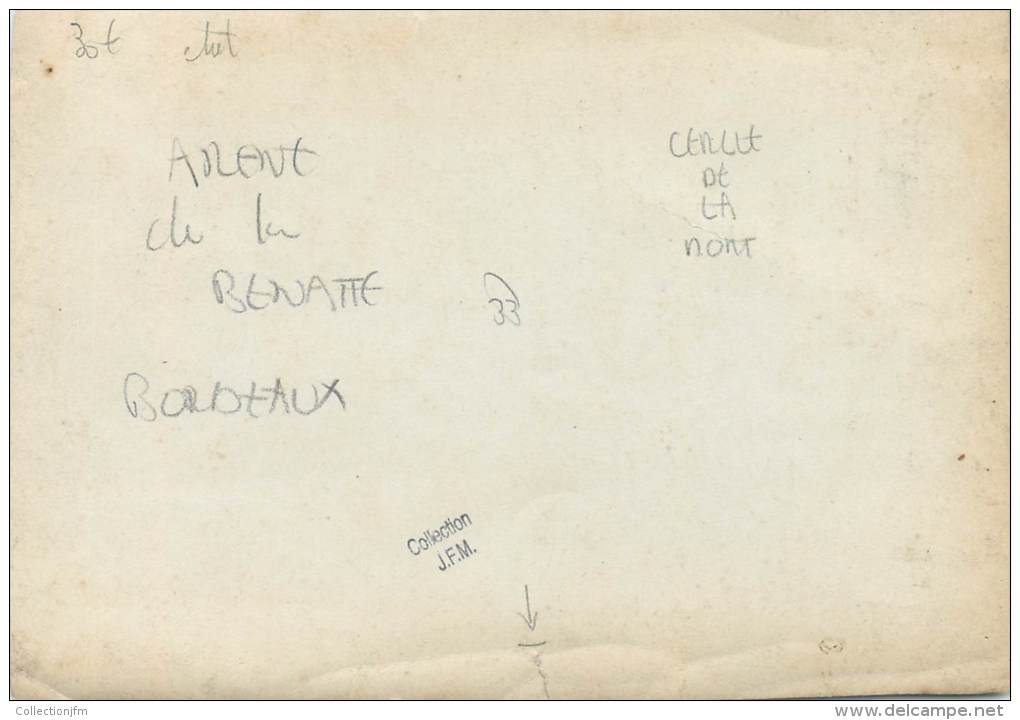 30€ etat
ARENE
de la
BENATTE
BORDEAUX
33
CERCLE
DE
LA
MORT
Collection
J.F.M.
Collectionjfm
www.delcampe.net